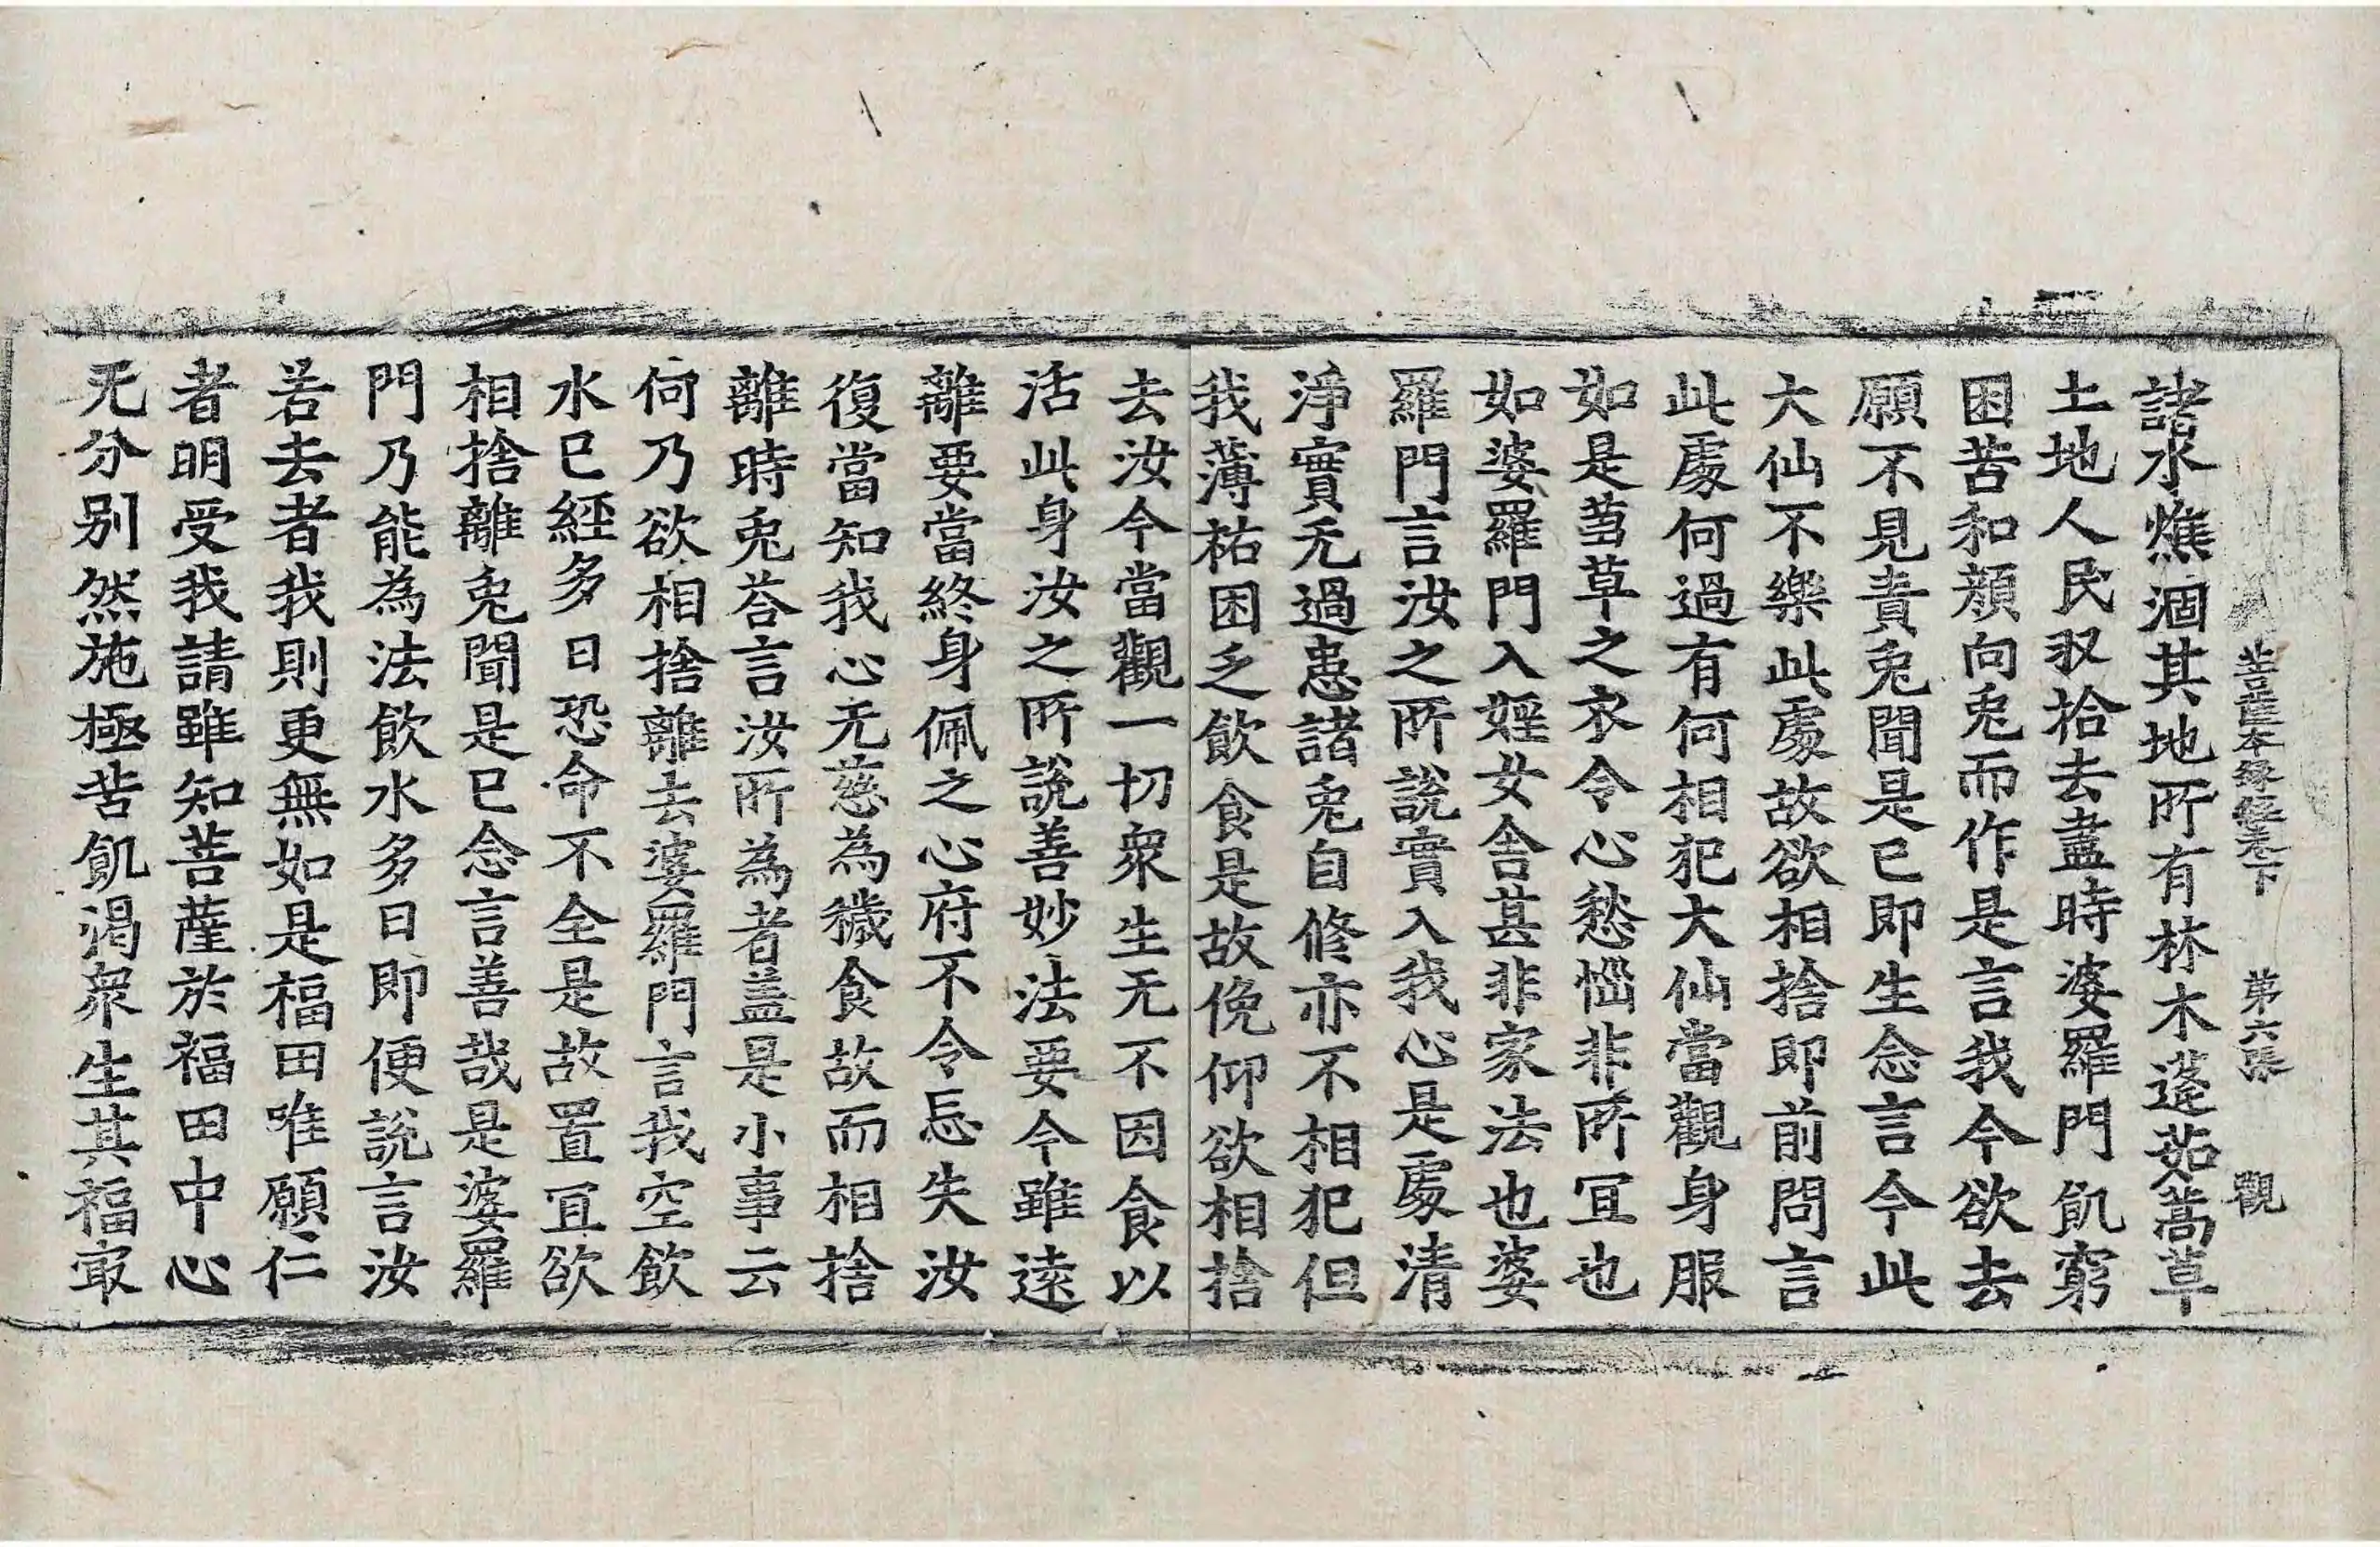 菩薩本緣經卷下 第六張 觀
諸水燋涸其地所有林木蓬茹蒿草
土地人民収拾去盡時婆羅門飢窮
困苦和顏向兎而作是言我今欲去
願不見責兎聞是已即生念言今此
大仙不樂此處故欲相捨即前問言
此處何過有何相犯大仙當觀身服
如是芻草之衣令心愁惱非所冝也
如婆羅門入婬女舍甚非家法也婆
羅門言汝之所說實入我心是處清
淨實无過患諸兎自修亦不相犯但
我薄祐困乏飲食是故俛仰欲相捨
去汝今當觀一切衆生无不因食以
活此身汝之所說善妙法要今雖遠
離要當終身佩之心府不令忘失汝
復當知我心无慈為穢食故而相捨
離時兎荅言汝所為者盖是小事云
何乃欲相捨離去婆羅門言我空飲
水已經多日恐命不全是故置冝欲
相捨離兎聞是已念言善哉是婆羅
門乃能為法飲水多日即便說言汝
若去者我則更無如是福田唯願仁
者明受我請雖知菩薩於福田中心
无分别然施極苦飢渴衆生其福冣